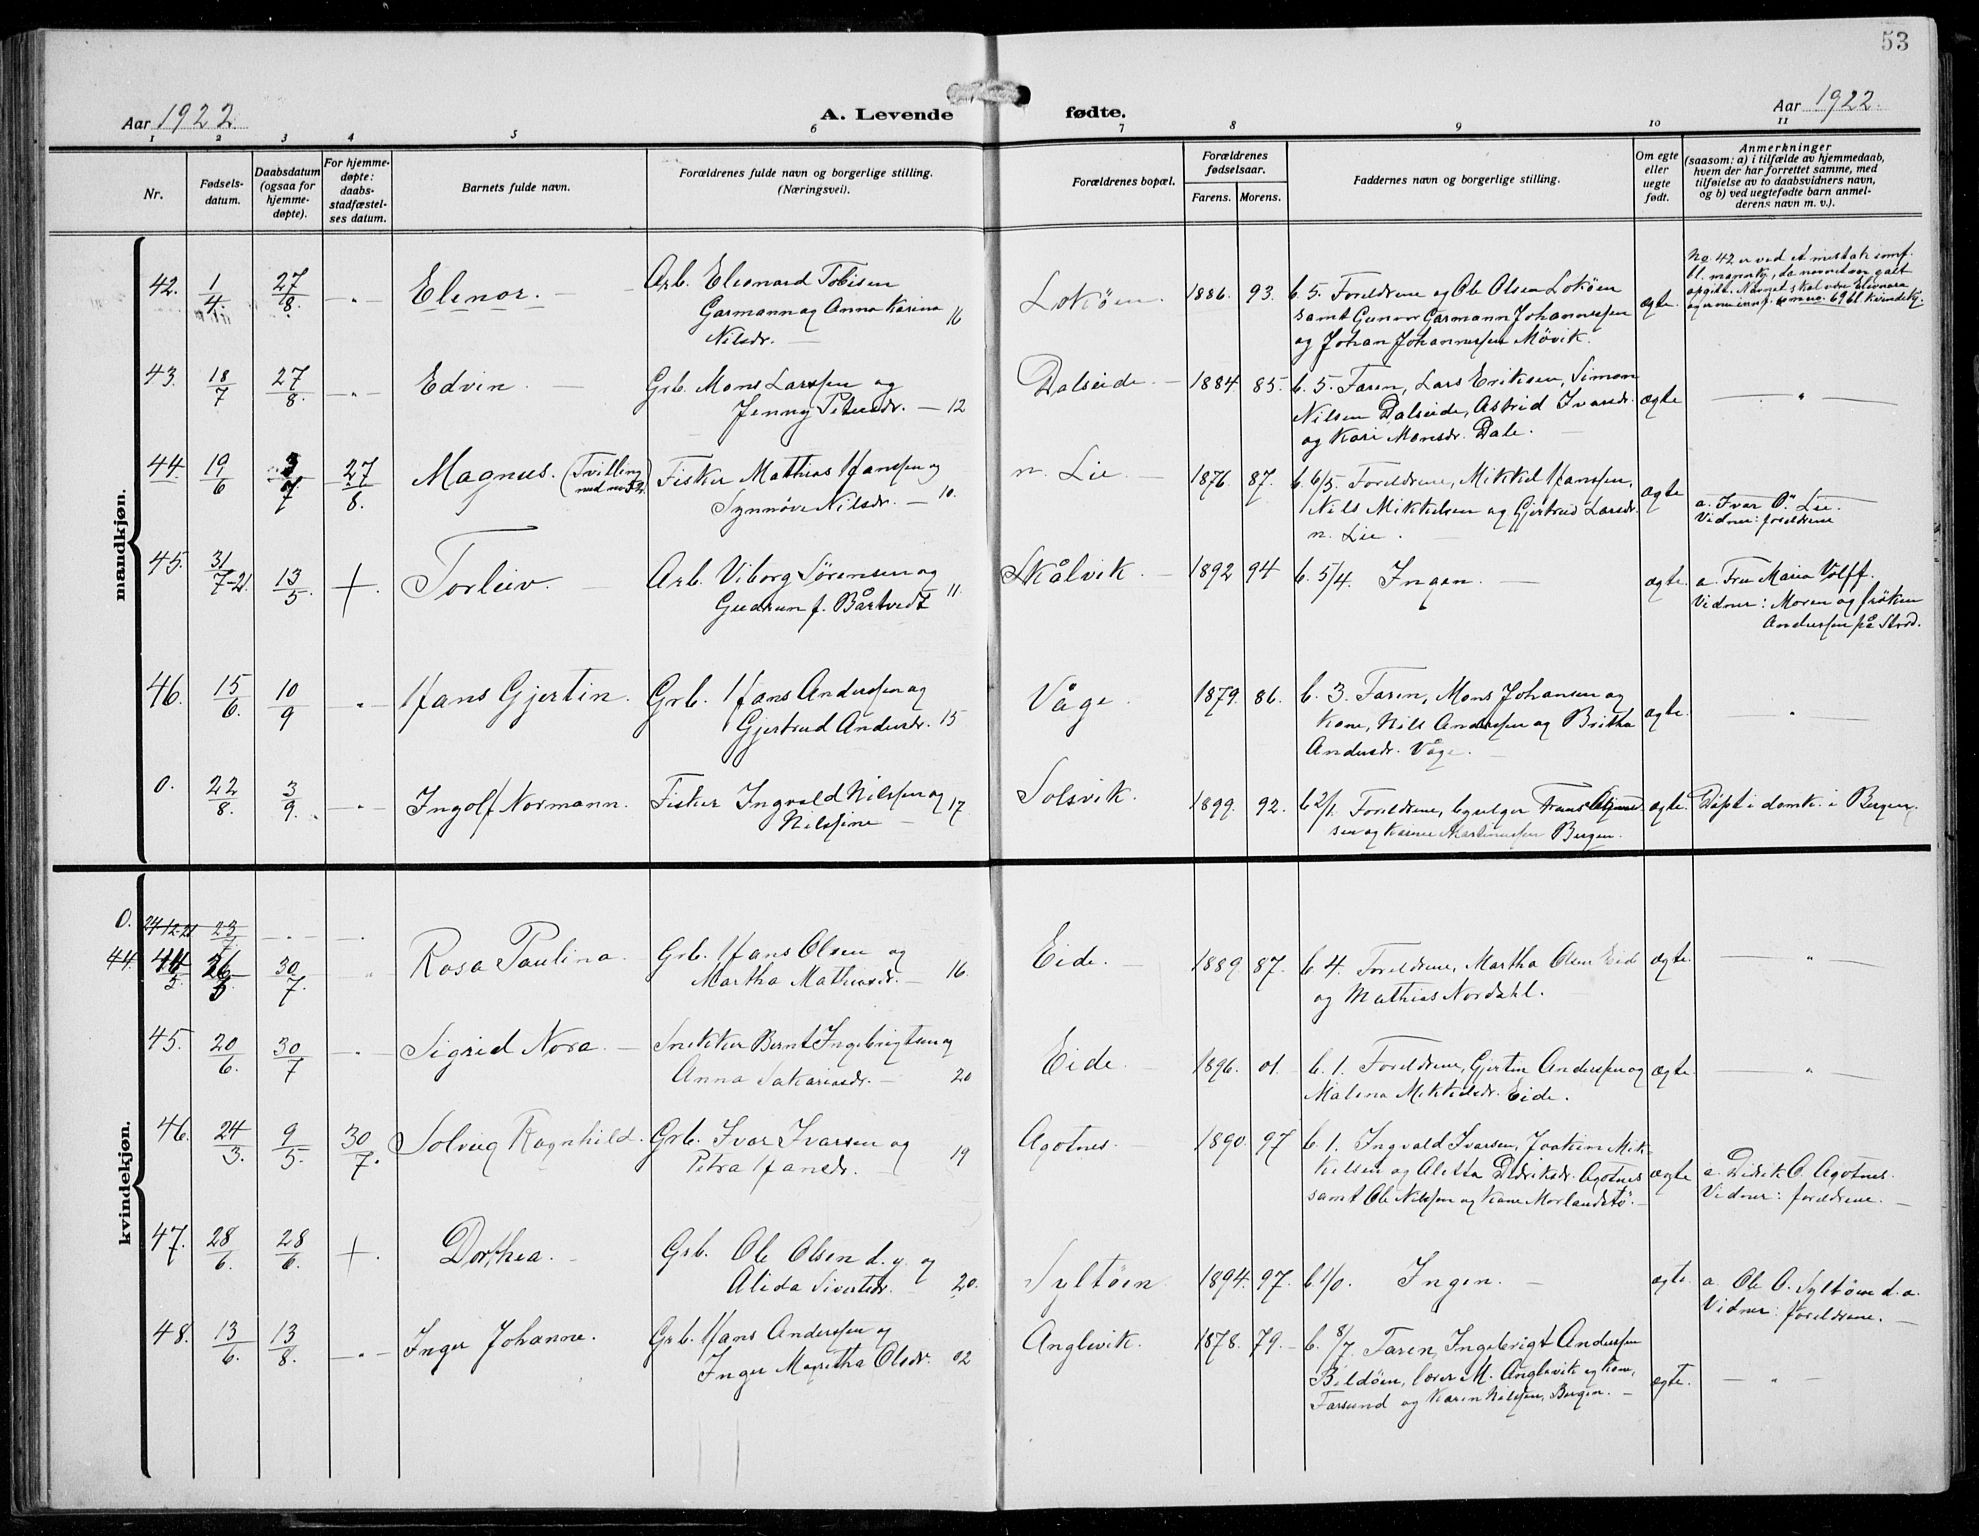 53
Aar 1922.
A. Levende fødte.
Aar 1922.
1 2 3 4 5 6 7 8 9 10 11
Nr.
Fødsels-
datum.
Daabsdatum
(ogsaa for
hjemme-
døpte).
For hjemme-
døpte:
daabs-
stadfæstel-
ses datum.
Barnets fulde navn.
Forældrenes fulde navn og borgerlige stilling.
(Næringsvei).
Forældrenes bopæl.
Forældrenes
fødselsaar.
Farens. Morens.
Faddernes navn og borgerlige stilling.
Om egte
eller
uegte
født.
Anmerkninger
(saasom: a) i tilfælde av hjemmedaab,
hvem der har forrettet samme, med
tilføielse av to daabsvidners navn,
og b) ved uegtefødte barn anmel-
derens navn m. v.).
mandkjøn.
42. 1/4 27/8 -"- Elenor.
Arb. Elemard Tobisen
Garmann og Anna Karina 16
Nilsdr.
Lokøen. 1886. 93.
b. 5. Foreldrene og Ole Olsen Lokøen
samt Gunvor Garmann Johannessen
og Johan Johannessen Møvik.
ægte.
No 42 er ved et mistak innf.
bl. mannskj., da navnet var galt
opgitt. Navnet skal være Elenora
og er innf. som no. 69 bl. kvindekj.
43. 18/7 27/8. -"- Edvin.
Grb. Mons Larssen og
Jenny Petersdr. 12
Dalseide. 1884. 85.
b. 5. Faren, Lars Eriksen, Simon
Nilsen Dalseide, Astrid Ivarsdr.
og Kari Monsdr. Dale.
ægte
"
44. 19/6 3/7 27/8. Magnus. (Tvilling
med no 52.)
Fisker Mathias Hanssen og
Synnøve Nilsdr. 10.
n. Lie 1876. 87.
b. 6/5. Foreldrene, Mikkel Hanssen,
Nils Mikkelsen og Gjertrud Larsdr.
n. Lie.
ægte
a. Ivar O. Lie.
Vidner: foreldrene
45. 31/7-21 13/5. + Torleiv.
Arb. Viborg Sørensen og
Gudrun f. Bårtvedt 11.
Skålvik. 1892 94
b. 5/4. Ingen.
ægte.
a. Fru Maria Wolff.
Vidner: Moren og frøken
Anderssen på Strd.
46. 15/6. 10/9 -"- Hans Gjertin.
Grb. Hans Anderssen og
Gjertrud Andersdr. 15
Våge. 1879. 86.
b. 3. Faren, Mons Johansen og
Kone, Nils Anderssen og Britha
Andersdr. Våge.
ægte.
"
0. 22/8. 3/9. -"- Ingolf Normann.
Fisker Ingvald Nilssen og 17
Nilssine
Solsvik. 1899. 92.
b. 2/1. Foreldrene,
sen og Karen Martinussen Bergen.
ægte. Døpt i domk. i Bergen.
kvindekjøn.
0. 24-12-21 23/7 -"- -"-
44. 30/7. " Rosa Paulina.
Grb. Hans Olsen og
Martha Mathiasdr. 16.
Eide. 1889. 87.
b. 4. Foreldrene, Martha Olsen Eide
og Mathias Nordahl.
ægte.
"
45. 20/6. 30/7 -"- Sigrid Nora.
Snekker Bernt Ingebrigtsen og
Anna Sakariasdr. 20
Eide. 1896. 01.
b. 1. Foreldrene, Gjertin Anderssen og
Malena Mikkelsdr. Eide.
ægte.
"
46. 24/3. 9/5. 30/7. Solveig Ragnhild.
Grb. Ivar Ivarsen og
Petra Hansdr. 19
Agotnes. 1890. 97
b. 1. Ingvald Ivarsen, Joakim Mik-
kelsen og Aletta Didriksdr. Agotnes
samt Ole Nilssen og Kone Morlandstø.
ægte
a. Didrik O. Agotnes.
Vidner: foreldrene.
47. 28/6. 28/6. + Dorthea.
Grb. Ole Olsen d. y. og
Alida Sivertsdr. 20.
Syltøen. 1894. 97.
b 1/0. Ingen.
ægte.
a. Ole O. Syltøen d. a.
Vidner: foreldrene.
48. 13/6. 13/8. -"- Inger Johanne.
Grb. Hans Anderssen og
Inger Magretha Olsdr. 02
Anglevik. 1878. 79.
b. 8/7. Faren, Ingebrigt Anderssen
Bildøen, lærer M. Anglevik og Kone,
Farsund og Karen Nilssen, Bergen.
ægte.
"